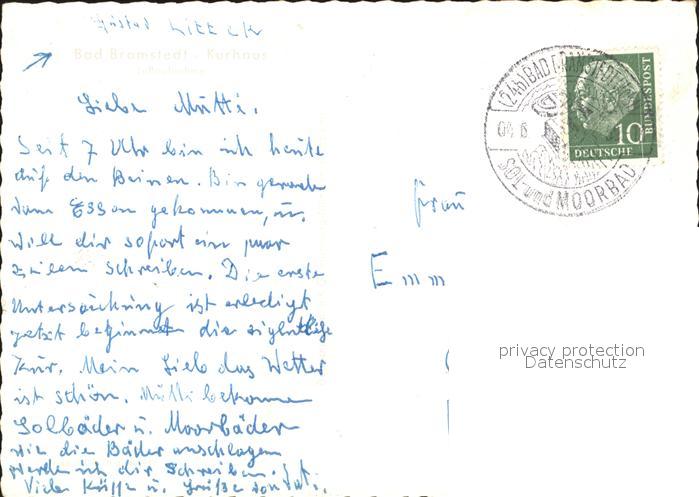 Bad Bramstedt - Kurhaus
Liebe Mutti.
Seit 7 Uhr bin ich heute
auf den Beinen. Bin gerade
vom Essen gekommen, u.
will dir sofort ein paar
Zeilen schreiben. Die erste
Untersuchung ist erledigt
jetzt beginnt die eigentliche
Kur. Mein Lieb das Wetter
ist schön. Mutti bekomme
Solbäder u. Moorbäder
wie die Bäder anschlagen
werde ich dir schreiben.
Viele Küsse u. Grüße von
(24b) BAD BRAMSTEDT
04.6
SOL- und MOORBAD
10
DEUTSCHE
BUNDESPOST
Frau
Emm
privacy protection
Datenschutz